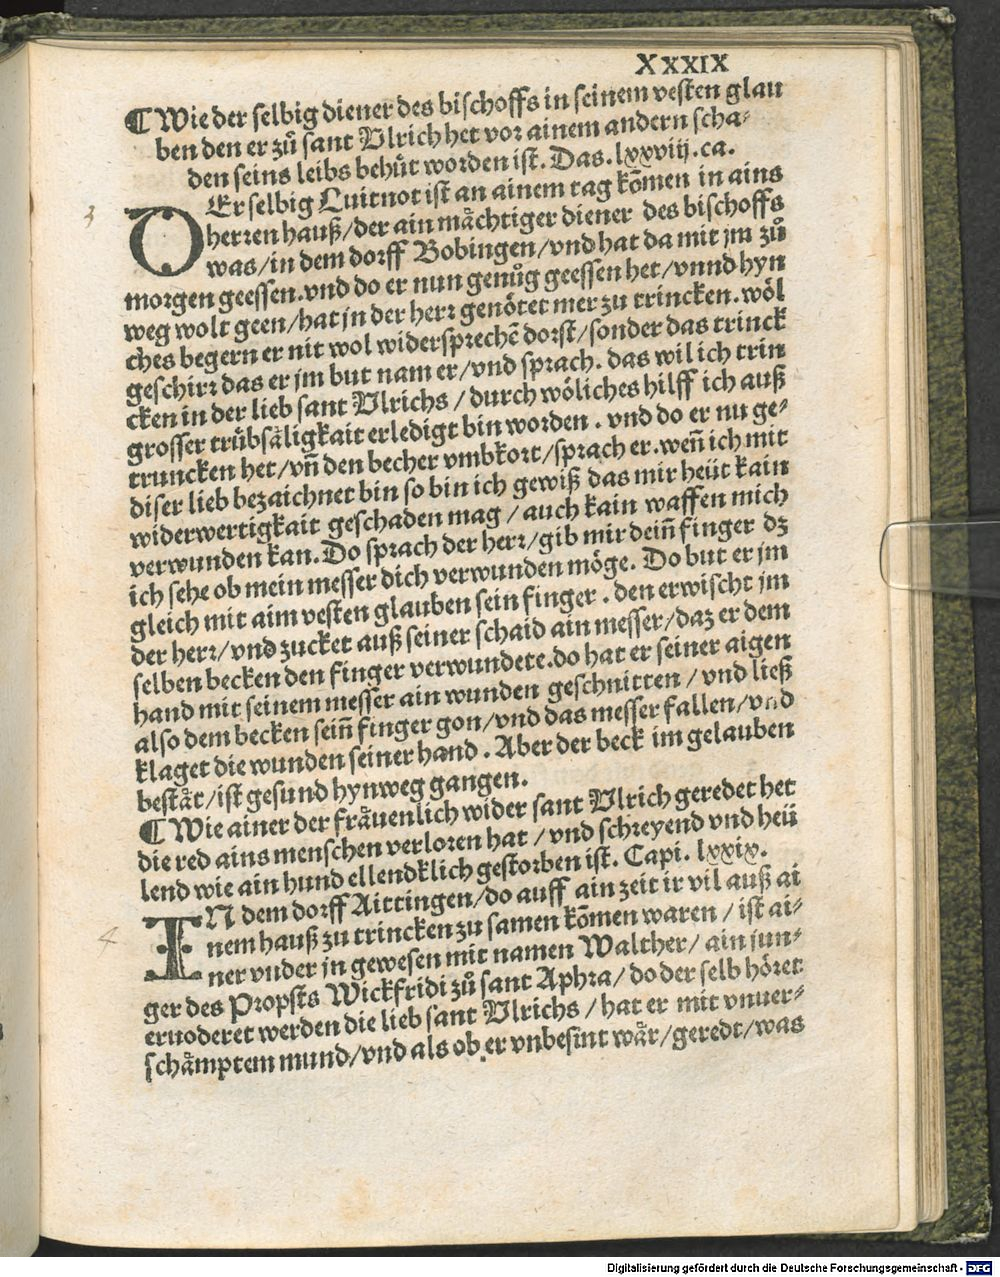 XXXIX
¶ Wie der selbig diener des bischoffs in seinem vesten glau
ben den er zů sant Ulrich het vor ainem andern scha⸗
den seins leibs behůt worden ist. Das. lxxviij. ca.
3
DEr selbig Luitnot ist an ainem tag kom̄en in ains
herren hauß/der ain mächtiger diener des bischoffs
was/in dem dorff Bobingen/vnd hat da mit jm zů
morgen geessen.vnd do er nun genůg geessen het/vnnd hyn
weg wolt geen/hat jn der herr genötet mer zu trincken.wöl
ches begern er nit wol widersprechē dorst/sonder das trinck
geschirr das er jm but nam er/vnd sprach. das wil ich trin
cken in der lieb sant Ulrichs / durch wöliches hilff ich auß
grosser trůbsäligkait erledigt bin worden . vnd do er nu ge⸗
truncken het/vn̄ den becher vmbkort/sprach er.wen̄ ich mit
diser lieb bezaichnet bin so bin ich gewiß das mir heüt kain
widerwertigkait geschaden mag / auch kain waffen mich
verwunden kan. Do sprach der herr/gib mir dein̄ finger dz
ich sehe ob mein messer dich verwunden möge. Do but er jm
gleich mit aim vesten glauben sein finger . den erwischt jm
der herr/vnd zucket auß seiner schaid ain messer/daz er dem
selben becken den finger verwundete.do hat er seiner aigen
hand mit seinem messer ain wunden geschnitten / vnd ließ
also dem becken sein̄ finger gon/vnd das messer fallen/vnd
klaget die wunden seiner hand . Aber der beck im gelauben
bestät/ist gesund hynweg gangen.
¶ Wie ainer der fräuenlich wider sant Ulrich geredet het
die red ains menschen verloren hat / vnd schreyend vnd heü
lend wie ain hund ellendklich gestorben ist. Capi. lxxix.
4
IN dem dorff Aittingen/do auff ain zeit ir vil auß ai
nem hauß zu trincken zu samen kom̄en waren / ist ai⸗
ner vnder jn gewesen mit namen Walther/ ain jun⸗
ger des Propsts Wickfridi zů sant Aphra/ do der selb höret
eruoderet werden die lieb sant Ulrichs / hat er mit vnuer⸗
schämptem mund/vnd als ob er vnbesint wär/geredt/was
Digitalisierung gefördert durch die Deutsche Forschungsgemeinschaft - DFG